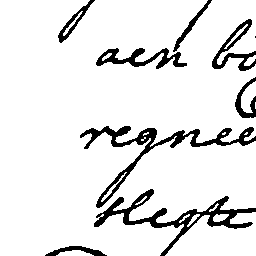 aen bo
regnee
slegte